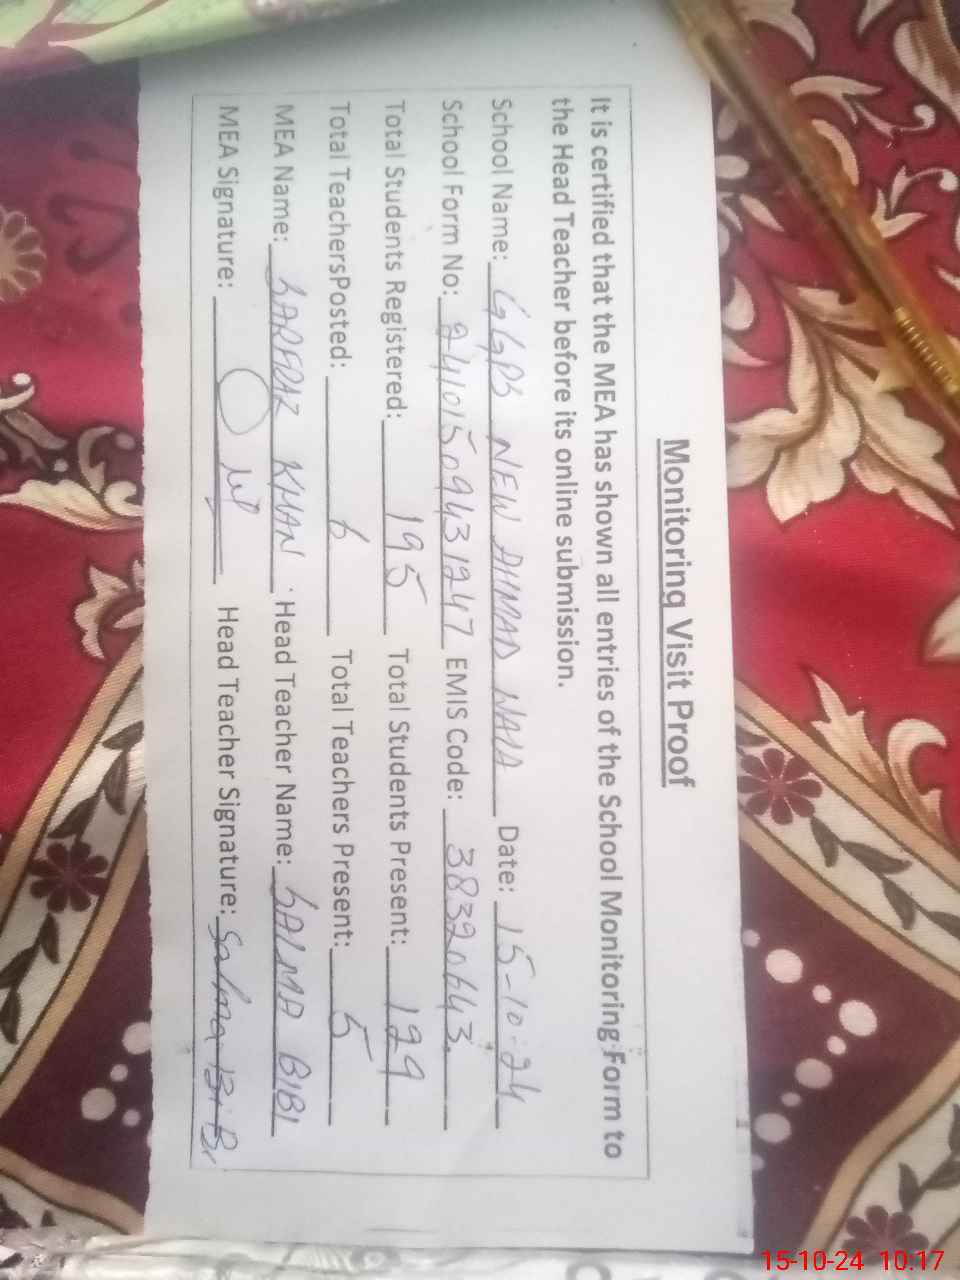 Monitoring Visit Proof
It is certified that the MEA has shown all entries of the School Monitoring Form to
the Head Teacher before its online submission.
School Name: GGPS NEW AHMAD WALA Date: 15-10-24
School Form No: 24101509431247 EMIS Code: 38320643.
Total Students Registered: 195 Total Students Present: 129
Total TeachersPosted: 6 Total Teachers Present: 5
MEA Name: SARFRAZ KHAN Head Teacher Name: SALMA BIBI
MEA Signature: Head Teacher Signature: Salma Bibi
15-10-24 10:17